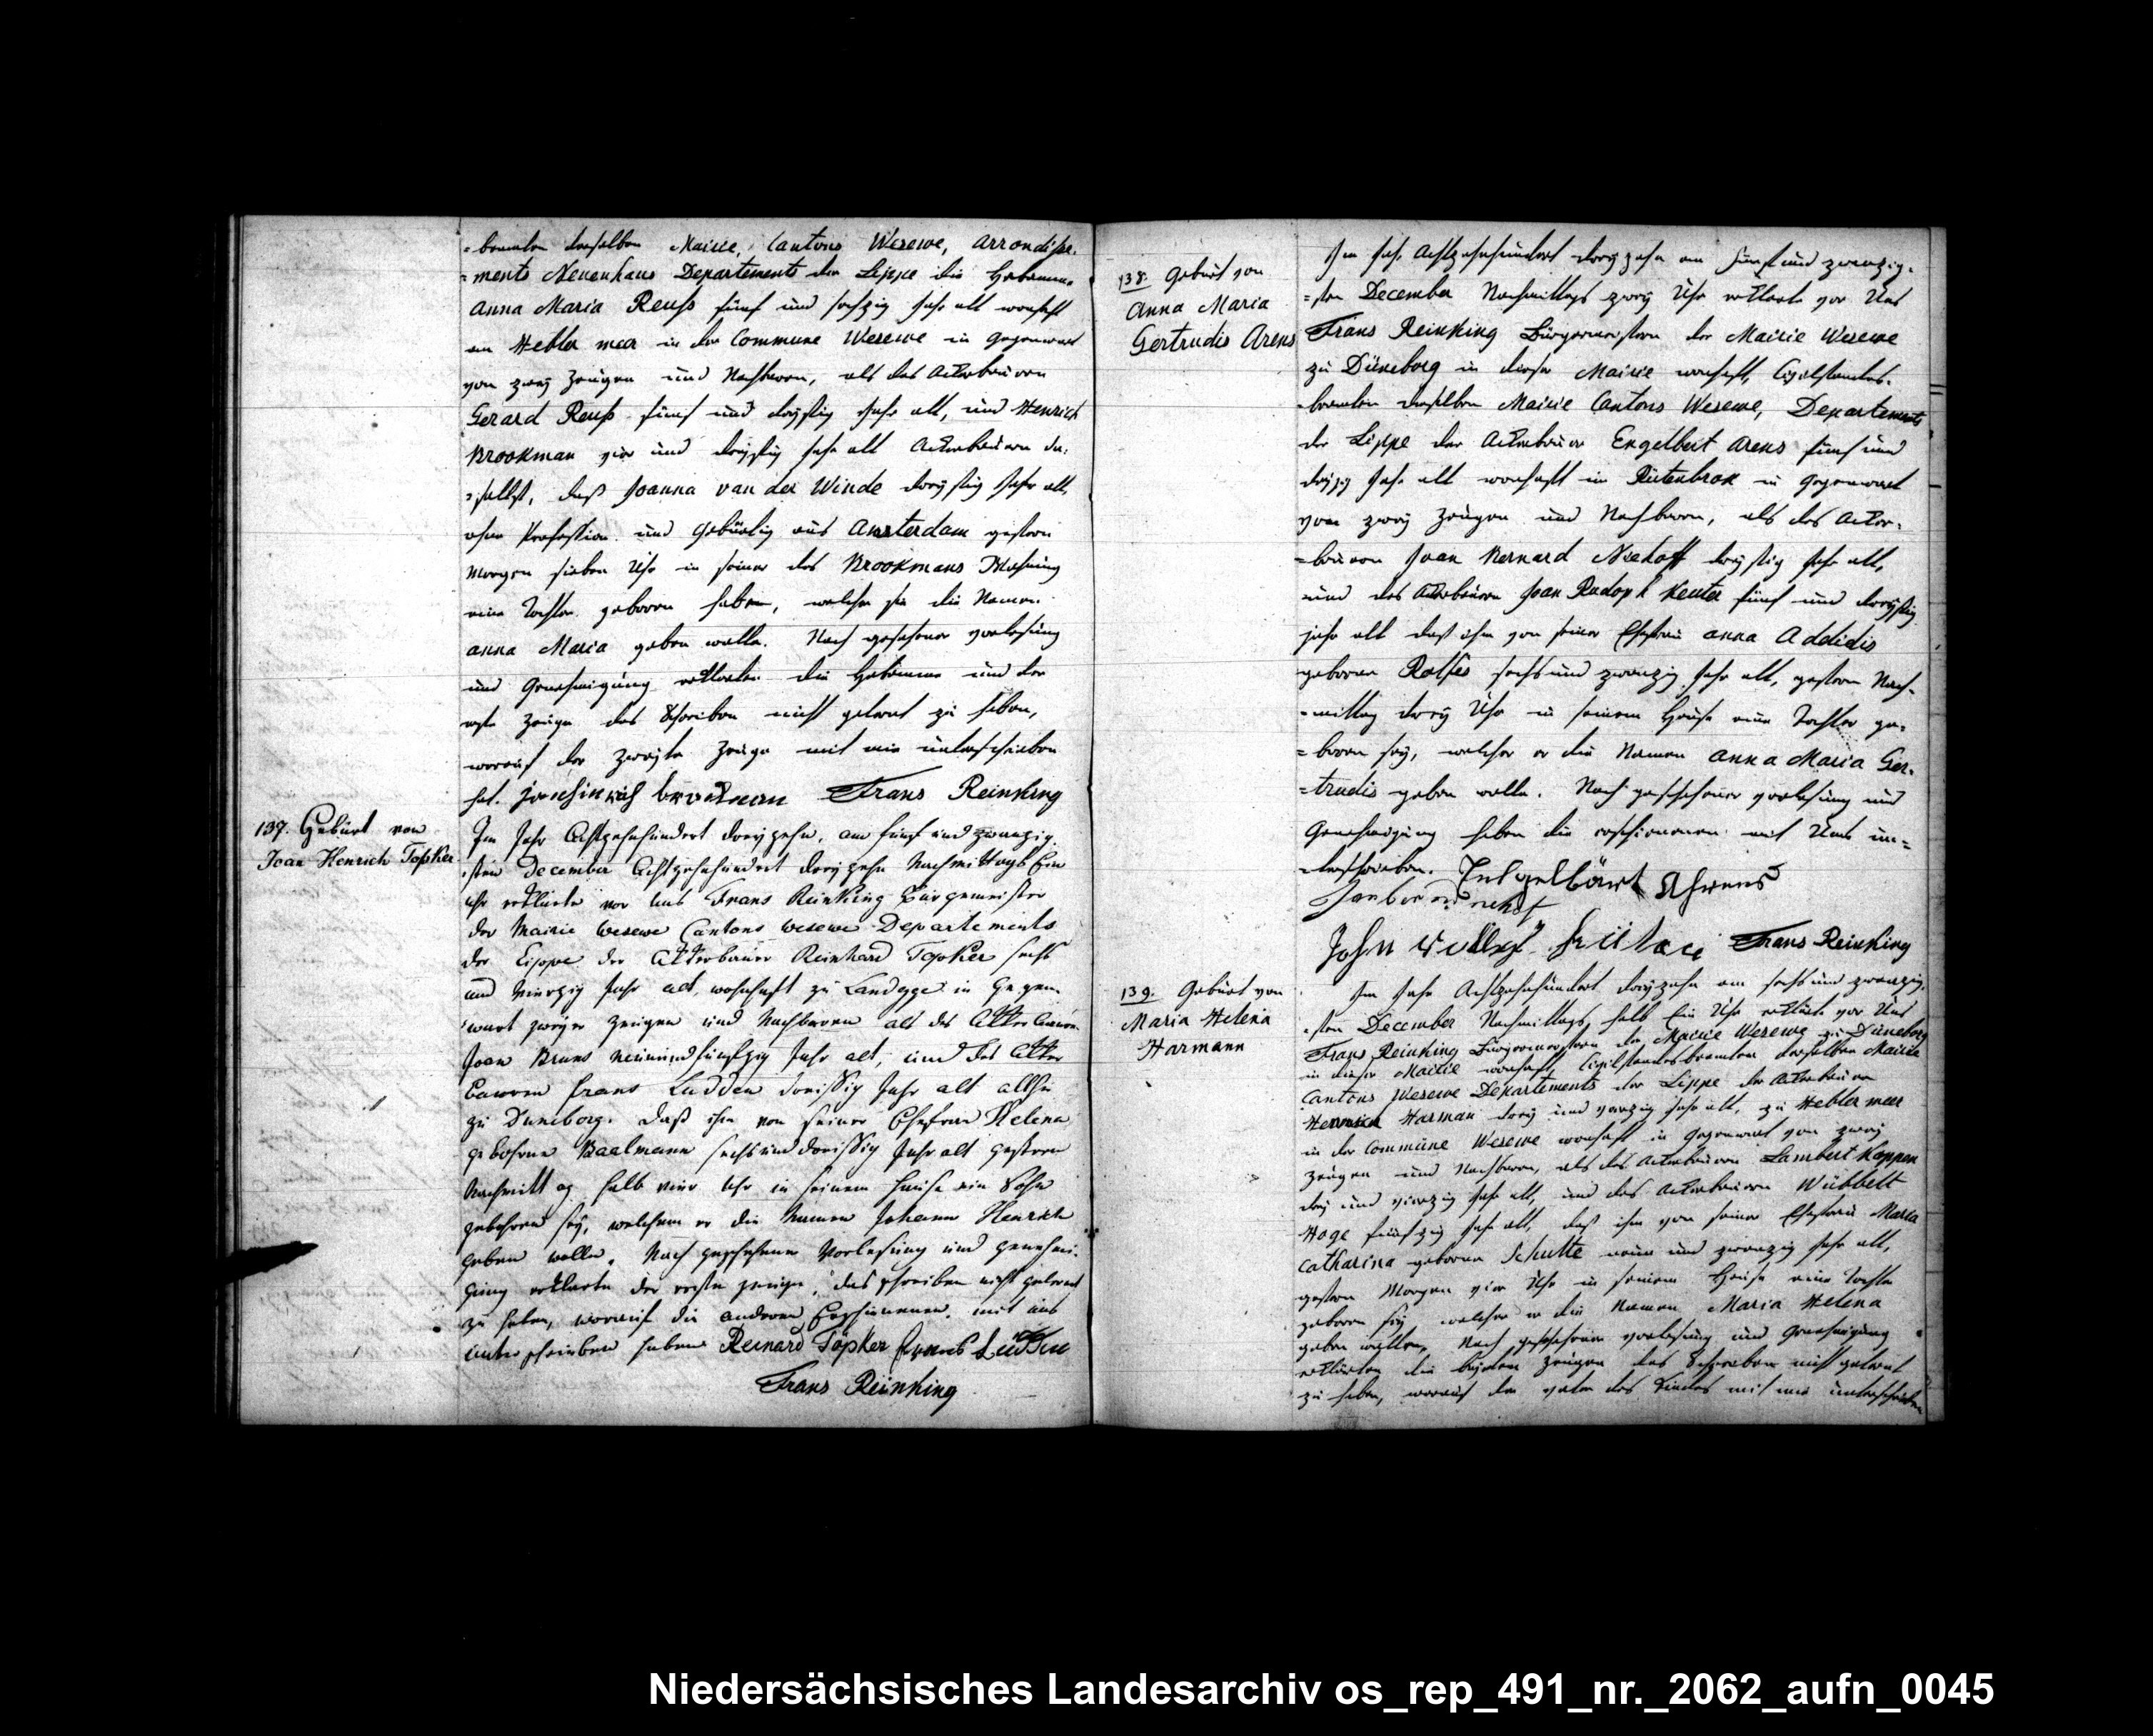 =beamten derselben Mairie, Cantons Wesewe, Arrondisse-
=ments Neuenhaus Departements der Lippe die Hebamme
Anna Maria Reuß fünf und sechzig Jahr alt wohnhaft
am Hebler meer in der Commune Wesewe in Gegenwart
von zwey Zeugen und Nachbaren, als des Ackerbauern
Gerard Reuß fünf und dreyßig Jahr alt, und Henrich
Brookman vier und dreyßig Jahr alt Ackerbauern da-
=selbst, daß Joanna van der Winde dreyßig Jahr alt,
ohne Profession und gebürtig aus Amsterdam gestern
Morgen sieben Uhr in seiner des Brookmans Wohnung
eine Tochter geboren habe, welcher sie die Namen
Anna Maria geben wolle. Nach geschehener Vorlesung
und Genehmigung erklarten die Hebamme und der
erste Zeuge das Schreiben nicht gelernt zu haben,
worauf der zweyte Zeuge mit mir unterschrieben
hat. Frans Reinking
137. Geburt von
Joan Henrich Töpker
Im Jahr Achtzehnhundert dreyzehn, am fünf und zwanzig-
sten December Achtzehnhundert dreyzehn Nachmittags Ein
Uhr erklärte vor uns Frans Reinking Bürgermeister
der Mairie Wesewe Cantons Wesewe Departements
der Lippe der Ackerbauer Reinhard Topker sechs
und vierzig Jahr alt, wohnhaft zu Landegge in Gegen-
wart zweyer Zeugen und Nachbaren als des Ackerbauern
Joan Bruns neunundfünfzig Jahr alt, und des Acker
bauern Frans Ludden dreissig Jahr alt
zu Duneborg. Daß ihm von seiner Ehefrau Helena
gebohrne Baalmann sechsunddreissig Jahr alt gestern
Nachmittag halb vier Uhr in seinem Hause ein Sohn
gebohren sey, welchem er die Namen Johann Henrich
geben wolle. Nach geschehener Vorlesung und Genehmi-
gung erklarte der erste Zeuge, das schreiben nicht gelernt
zu haben, worauf die anderen Erschienenen mit uns
unterschrieben haben Reinard Töpker Frans Ludden
Frans Reinking
138. Geburt von
Anna Maria
Gertrudis Arens
Im Jahr Achtzehnhundert dreyzehn am fünf und zwanzig-
=sten December Nachmittags zwey Uhr erklarte vor Uns
Frans Reinking Bürgermeistern der Mairie Wesewe
zu Düneborg in dieser Mairie wohnhaft, Civilstandes-
beamten derselben Mairie Cantons Wesewe, Departements
der Lippe der Ackerbauer Engelbert Arens fünf und
dreyzig Jahr alt wohnhaft im Rütenbrok in Gegenwart
von zwey Zeugen und Nachbaren, als des Acker-
=bauern Joan Bernard Niehoff dreyßig Jahr alt,
und des Ackerbauern Joan Rudoph Keuter fünf und dreyßig
Jahr alt daß ihm von seiner Ehefrau Anna Addidis
geboren Rolfes sechs und zwanzig Jahr alt, gestern Nach-
=mittag drey Uhr in seinem Hause eine Tochter ge-
=boren sey, welcher er die Namen Anna Maria Ger-
=trudis geben wolle. Nach geschehener Vorlesung und
Genehmigung haben die erschienenen mit Uns un-
=terschrieben. Engelbärt Ahrens
Frans Reinking
139. Geburt von
Maria Helena
Harmann
Im Jahr Achtzehnhundert dreyzehn am sechs und zwanzig-
=sten December Nachmittags halb Ein Uhr erklärte vor Uns
Frans Reinking Bürgermeistern der Mairie Wesewe zu Düneborg
in dieser Mairie wohnhaft, Civilstandesbeamten derselben Mairie
Cantons Wesewe Departements der Lippe der Ackerbauer
Henrich Harman drey und vierzig Jahr alt, zu Hebler meer
in der Commüne Wesewe wohnhaft in Gegenwart von zwey
Zeugen und Nachbaren, als des Ackerbauern Lambert Kappen
drey und vierzig Jahr alt, und des Ackerbauern Wübbelt
Hoge fünfzig Jahr alt, daß ihm von seiner Ehefrau Maria
Catharina geboren Schulte neun und zwanzig Jahr alt,
gestern Morgen vier Uhr in seinem Hause eine Tochter
geboren sey welcher er die Namen Maria Helena
geben wollen, Nach geschehener Vorlesung und Genehmigung
erklärten die beyden Zeugen das Schreiben nicht gelernt
zu haben, worauf der Vater des Kindes mit mir unterschrieben
Niedersächsisches Landesarchiv os_rep_491_nr._2062_aufn_0045